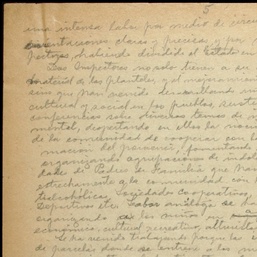 5
una intensa labor por medio de circu
mentaciones claras y precisas y por
pectores habiendo dividido el Estado en
Los Inspectores no solo tienen a su
material de los planteles y el mejoramien
sino que han venido desarrollando un
cultural y social en los pueblos
conferencias sobre diversos temas de
mental, despertando en ellos la
de la comunidad de cooperar con la
mación del personal, fomentando
organizando agrupaciones de índole
dades de Padres de Familia que han
estrechamente a la comunidad con
tialcohólicas, Sociedades Cooperativas
Deportivas etc. Labor análoga se ha
organizando a los niños en
económico, cultural, recreativo, altruista
Se ha venido trabajando porque la
de parcelas donde se